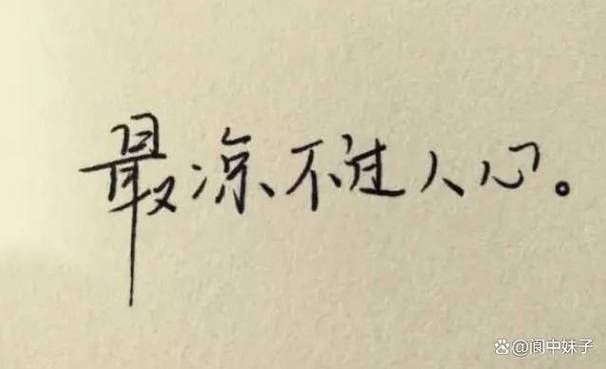 最凉不过人心。
@阆中妹子